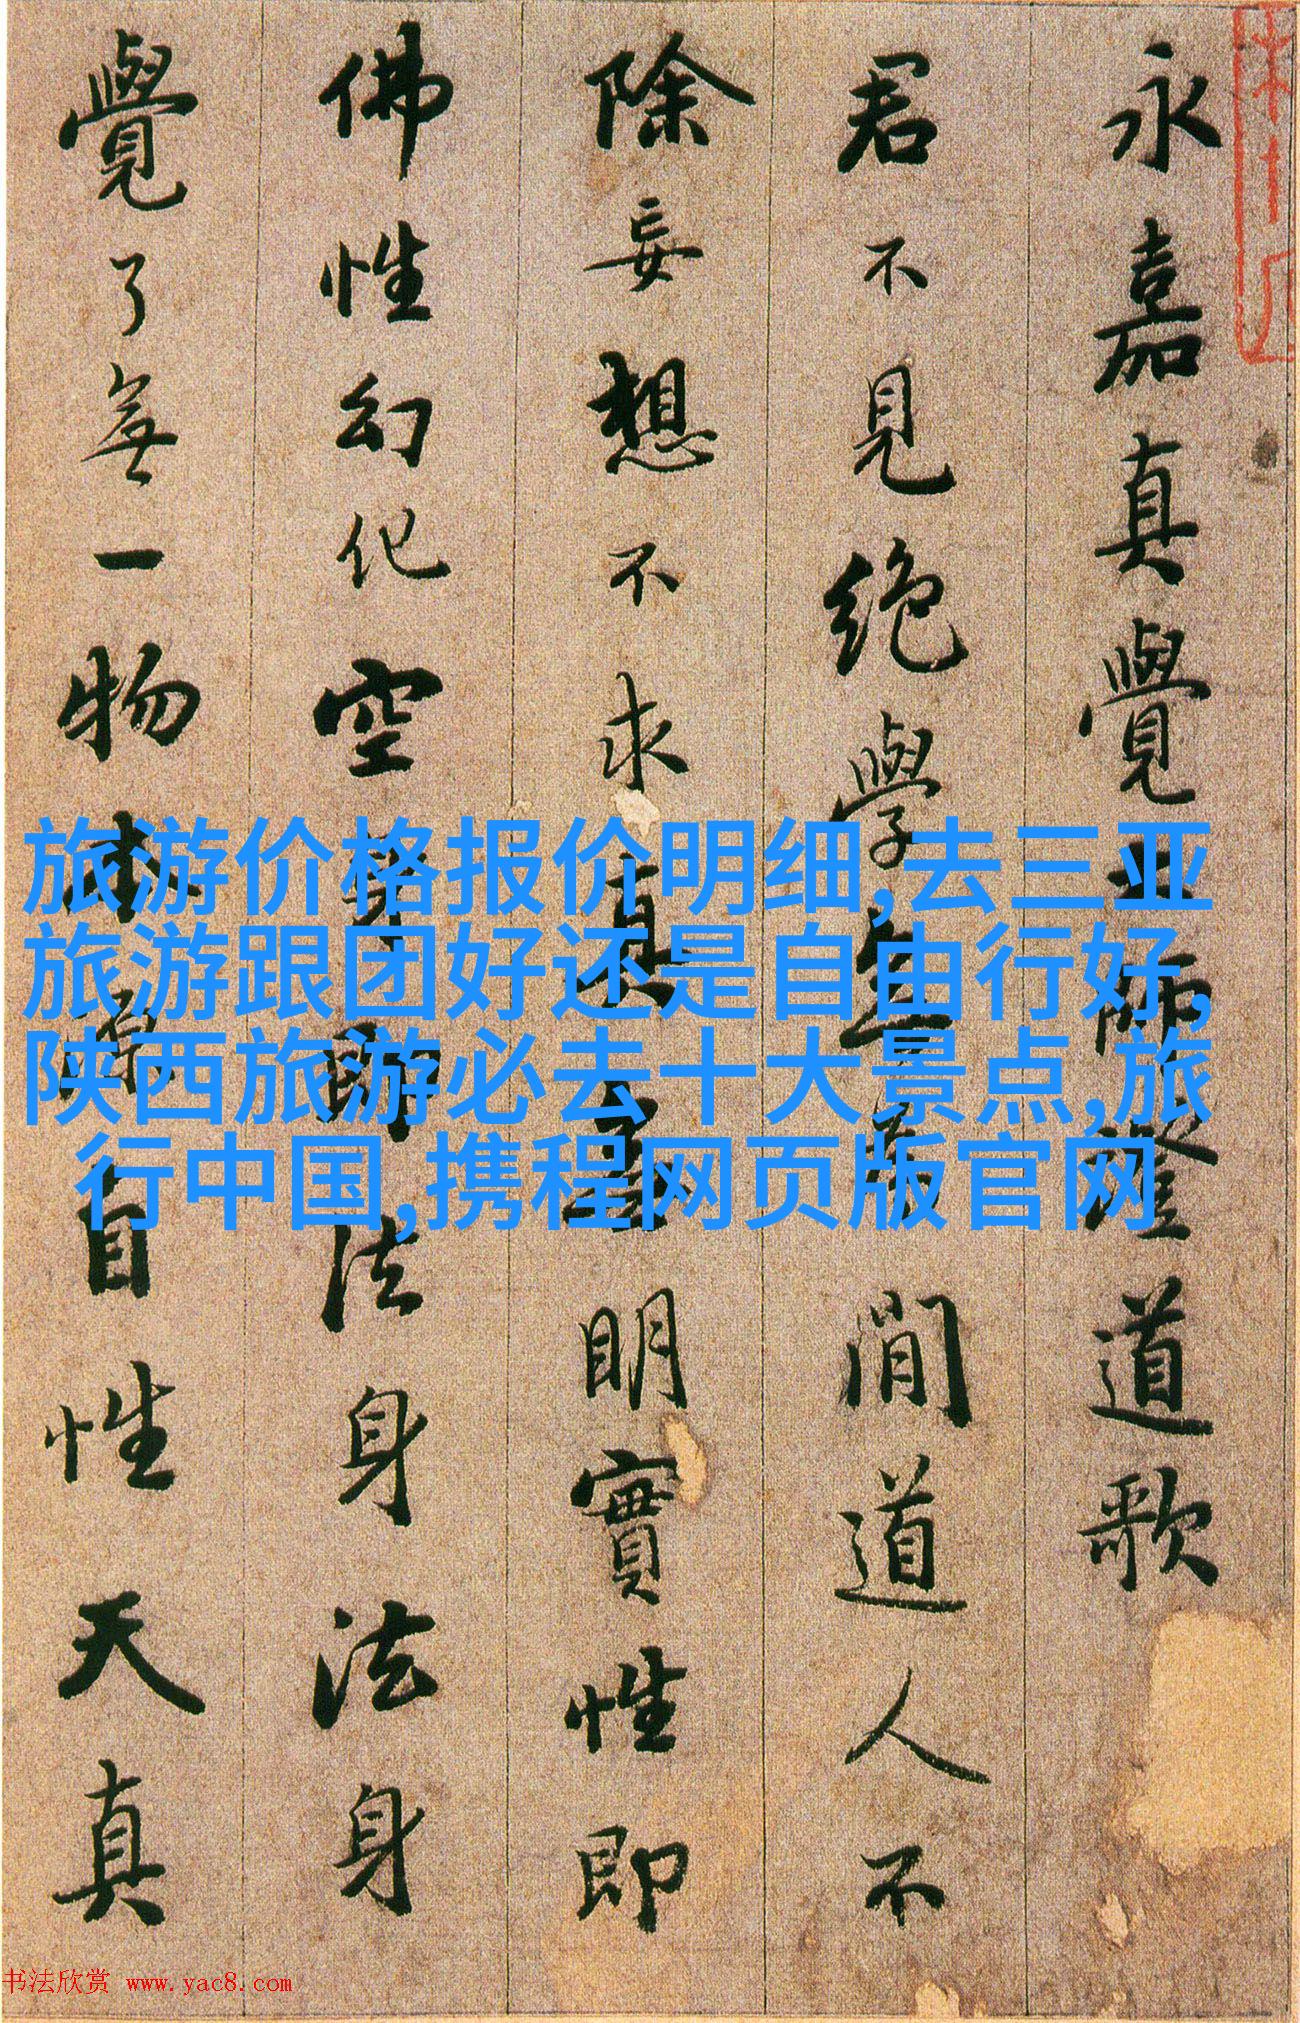 永嘉真覺大師證道歌
君不見絶學無為閒道人不
除妄想不求真無明實性即
佛性幻化空身即法身法身
覺了無一物本源自性天真
旅游价格报价明细,去三亚
旅游跟团好还是自由行好,
陕西旅游必去十大景点,旅
行中国,携程网页版官网
书法欣赏 www.yac8.com